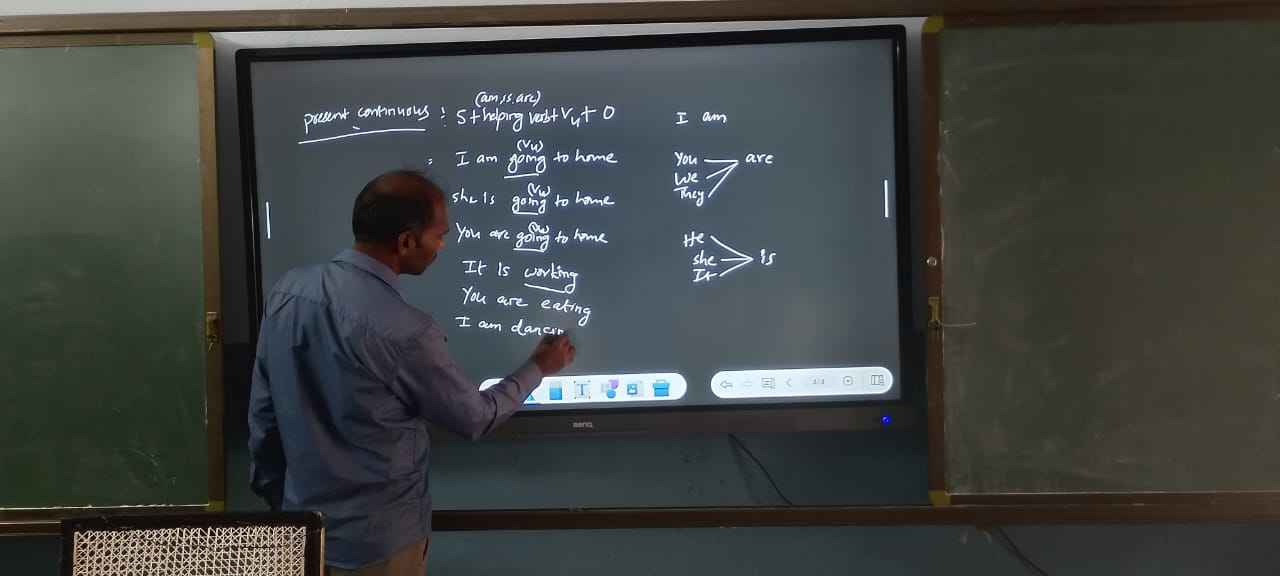 (am, is, are)
present continuous : S + helping verb + V4 + O
(V4)
: I am going to home
(V4)
she is going to home
(V4)
You are going to home
It is working
You are eating
I am dancin
I am
You
We
They
are
He
she
It
is
T
4/4
BenQ